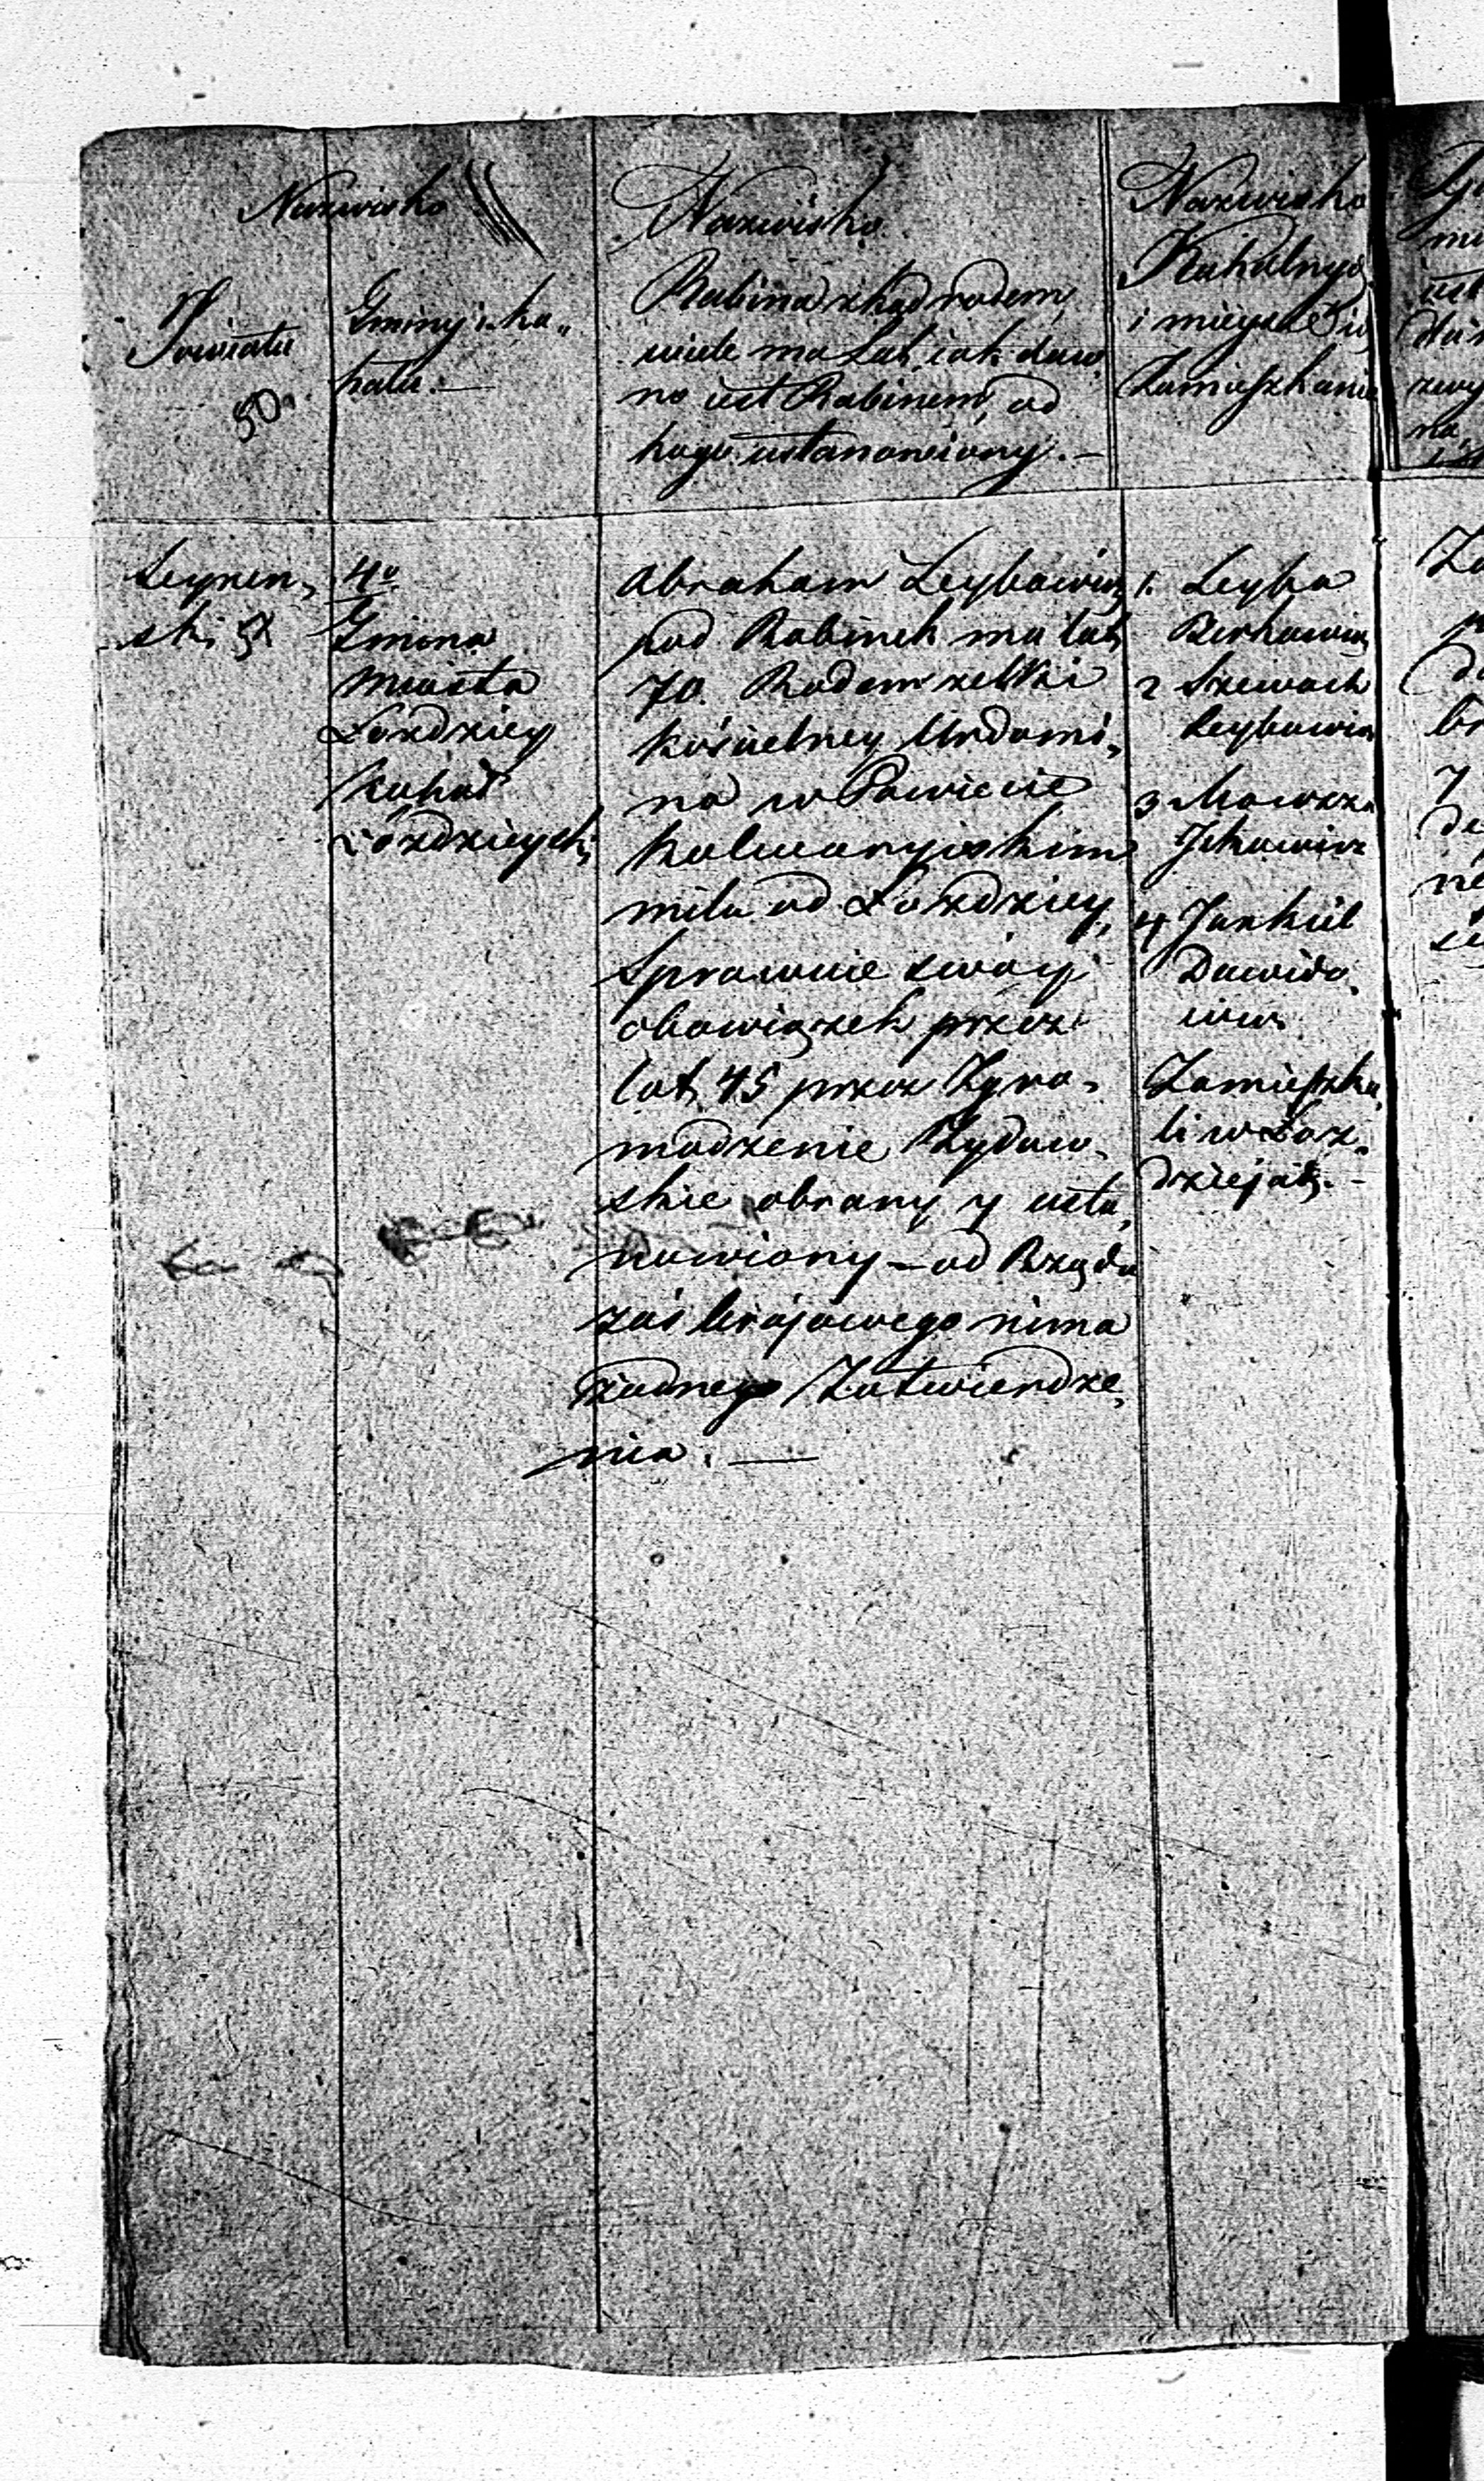 Nazwisko
Powiatu
50.
Gminy i ka„
hału.—
Nazwisko
Rabina zkąd rodem,
wiele ma Lat, iak daw„
no iest Rabinem, od
kogo ustanowiony.—
Nazwisko
Kahalnych
i mieysce ich
Zamieszkania
Seynen„
ski
4o
Gmina
Miasta
Łozdziey
Kahał
Łozdzieyski
Abraham Leybowicz
pod Rabinek ma lat
70. Rodem z
kościelney Urdomi„
na w Powiecie
Kalwaryiskim
mila od Łozdziey,
Sprawuie swóy
obowiązek przez
lat 45 przez Zgro„
madzenie Żydow„
skie obrany y usta„
nowiony — od Rządu
zaś krajowego nima
żadnego Zatwierdze„
nia.—
1. Leyba
Berkowicz
2 Szewach
Leybowicz
3 Mowsza
Ickowicz
4 Jankiel
Dawido„
wicz
Zamieszka„
li w Łoz„
dziejach.—